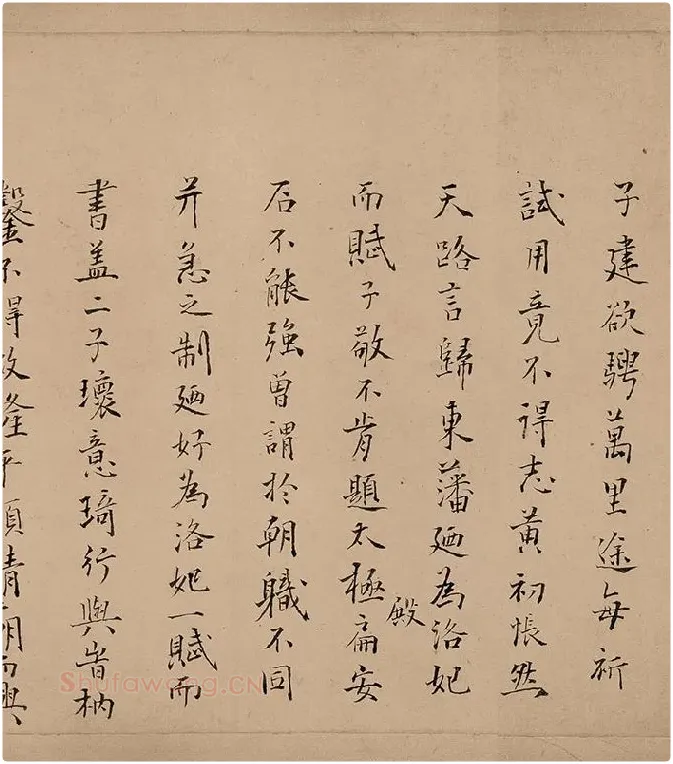 子建欲騁萬里途每祈
試用竟不得志黃初悵然
天路言歸東藩廼為洛妃
而賦子敬不肯題太極殿扁安
石不能強曾謂於朝職不同
并急之制廼好為洛妃一賦而
書盖二子瓌意琦行與昔枘
鑿不得攸
Shufawang.CN